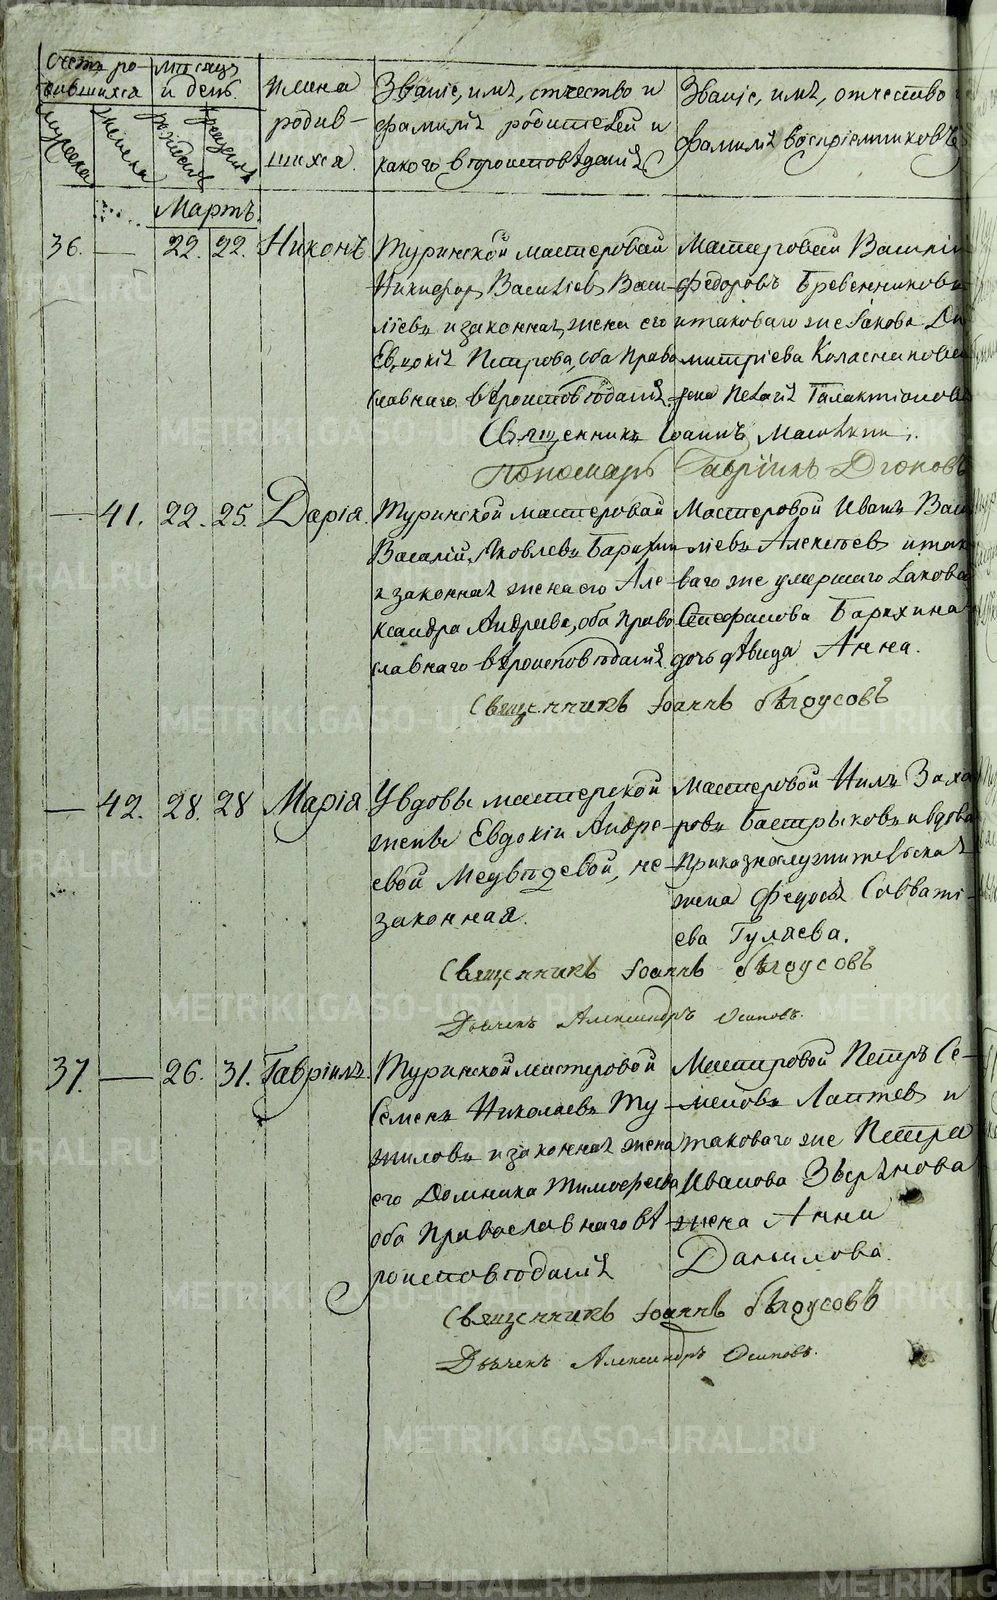 Счетъ ро-
дившихся
Мужеска
Женска
Мѣсяцъ
и день.
рожденія
крещенія
Имена
родив-
шихся.
Званіе, имя, отчество и
фамилія родителей и
какого вѣроисповѣданія
Званіе, имя, отчество и
фамилія воспріемниковъ
Мартъ.
36. — 22. 22. Никонъ
Туринской мастеровой
Никифоръ Василіевъ Васи-
ліевъ и законная жена его
Евдокія Петрова, оба Право
славнаго вѣроисповѣданія.
Мастеровой Василій
Федоровъ Бревенниковъ
и таковаго же Іакова Ди
митріева Коласникова
жена Пелагія Галактіонова
Священникъ Іоаннъ
Пономарь Гавріилъ
— 41. 22. 25. Дарія.
Туринской мастеровой
Василій Яковлевъ Барахин
и законная жена его Але
ксандра Андреева, оба Право
славнаго вѣроисповѣданія
Мастеровой Иванъ Васи
ліевъ Алексѣевъ и тако
ваго же умершаго Іакова
Стефанова Барахина
дочь дѣвица Анна.
Священникъ Іоаннъ Бѣлоусовъ
— 42. 28. 28 Марія
У вдовы мастерской
жены Евдокіи Андре-
евой Медвѣдевой, не-
законная.
Мастеровой Нилъ Заха
ровъ Бастрыковъ и вдова
Приказнослужительская
жена Федосья Савваті-
ева Гуляева.
Священникъ Іоаннъ Бѣлоусовъ
Дьячекъ Александръ Осиповъ.
37. — 26. 31. Гавріилъ
Туринской мастеровой
Семенъ Николаевъ Ту-
жиловъ и законная жена
его Домника Тимофеева
оба Православнаго вѣ-
роисповѣданія
Мастеровой Петръ Се-
меновъ Лаптевъ и
таковаго же Петра
Иванова Звѣрѣнова
жена Анна
Данилова.
Священникъ Іоаннъ Бѣлоусовъ
Дьячекъ Александръ Осиповъ.
METRIKI.GASO-URAL.RU